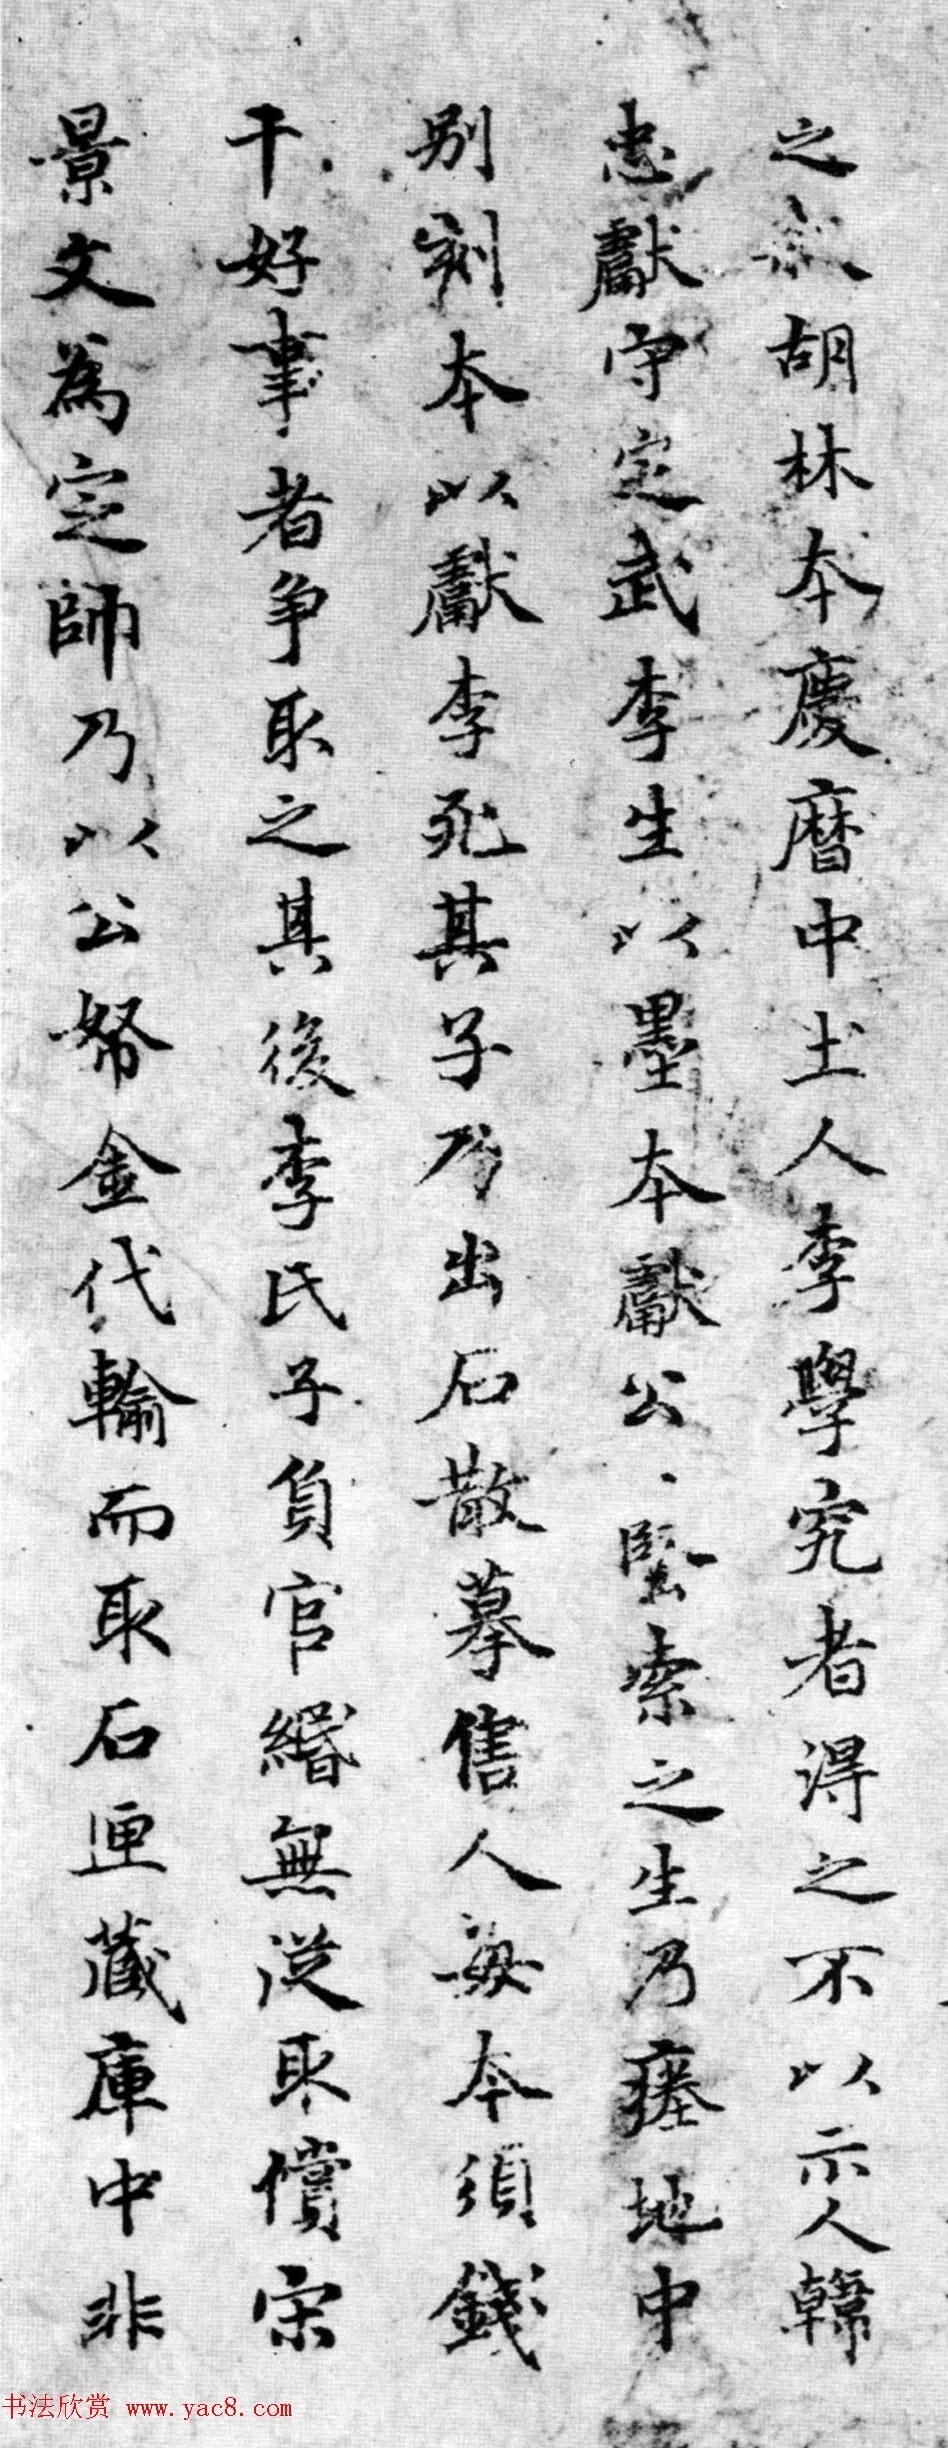 之　胡林本慶曆中土人李學究者得之不以示人韓
忠獻守定武李生以墨本獻公、堅索之生乃瘗地中
別刻本以獻李死其子乃出石散摹售人每本須錢
千好事者争取之其後李氏子負官緡無從取償宋
景文為定帥乃以公帑金代輸而取石匣藏庫中非
书法欣赏 www.yac8.com